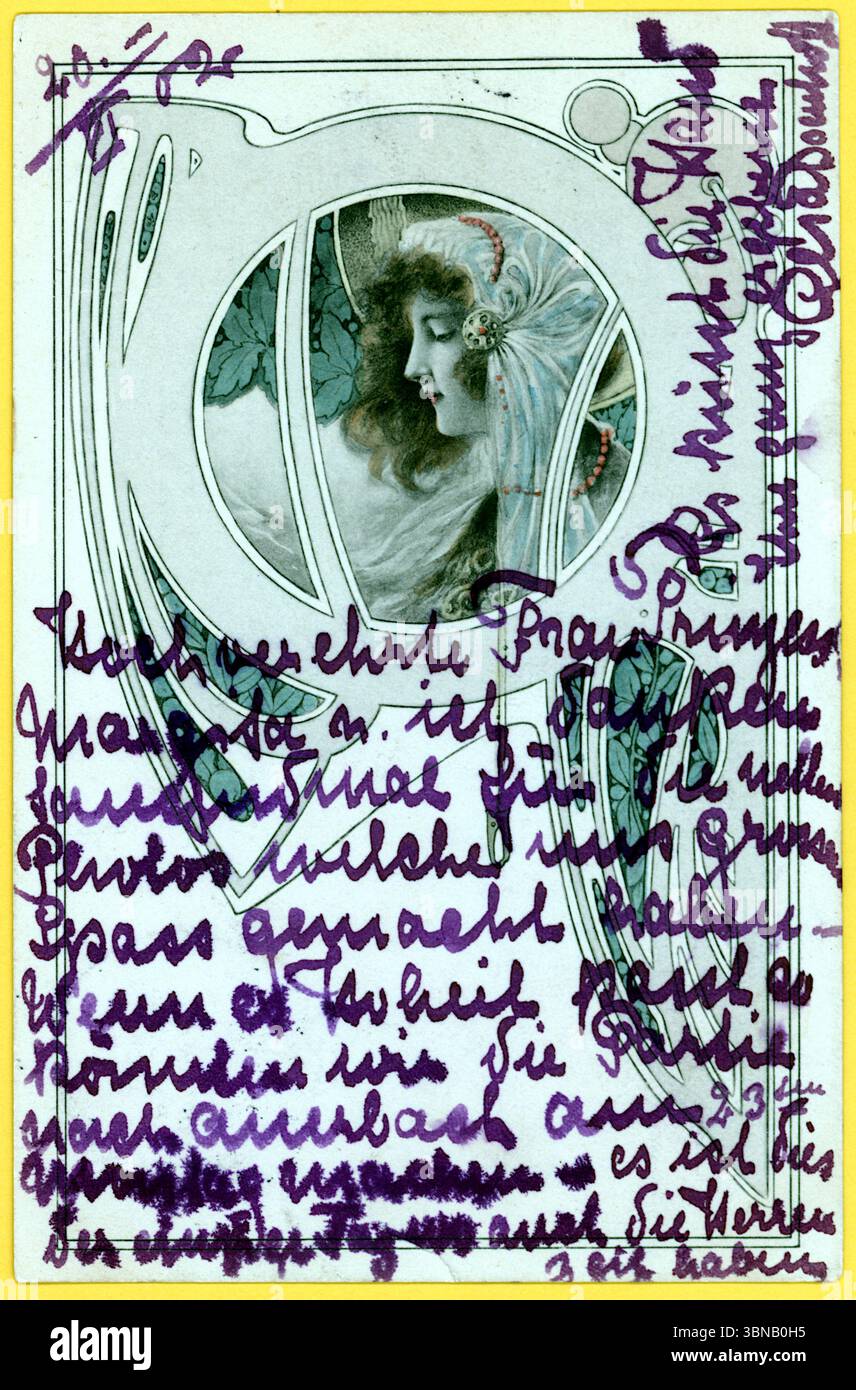 20. II 02
Hochverehrte Frau Prinzess
Margarita u. ich danken
tausendmal für die netten
welche uns grossen
Spass gemacht haben –
Wenn es Hoheit passt so
könnten wir die Partie
nach Auerbach am 23ten
Montag machen – es ist dies
der einzige Tag wo auch die Herren
Zeit haben
Es küsst die Hand
Ihre ganz
alamy
Image ID: 3BNB0H5
www.alamy.com